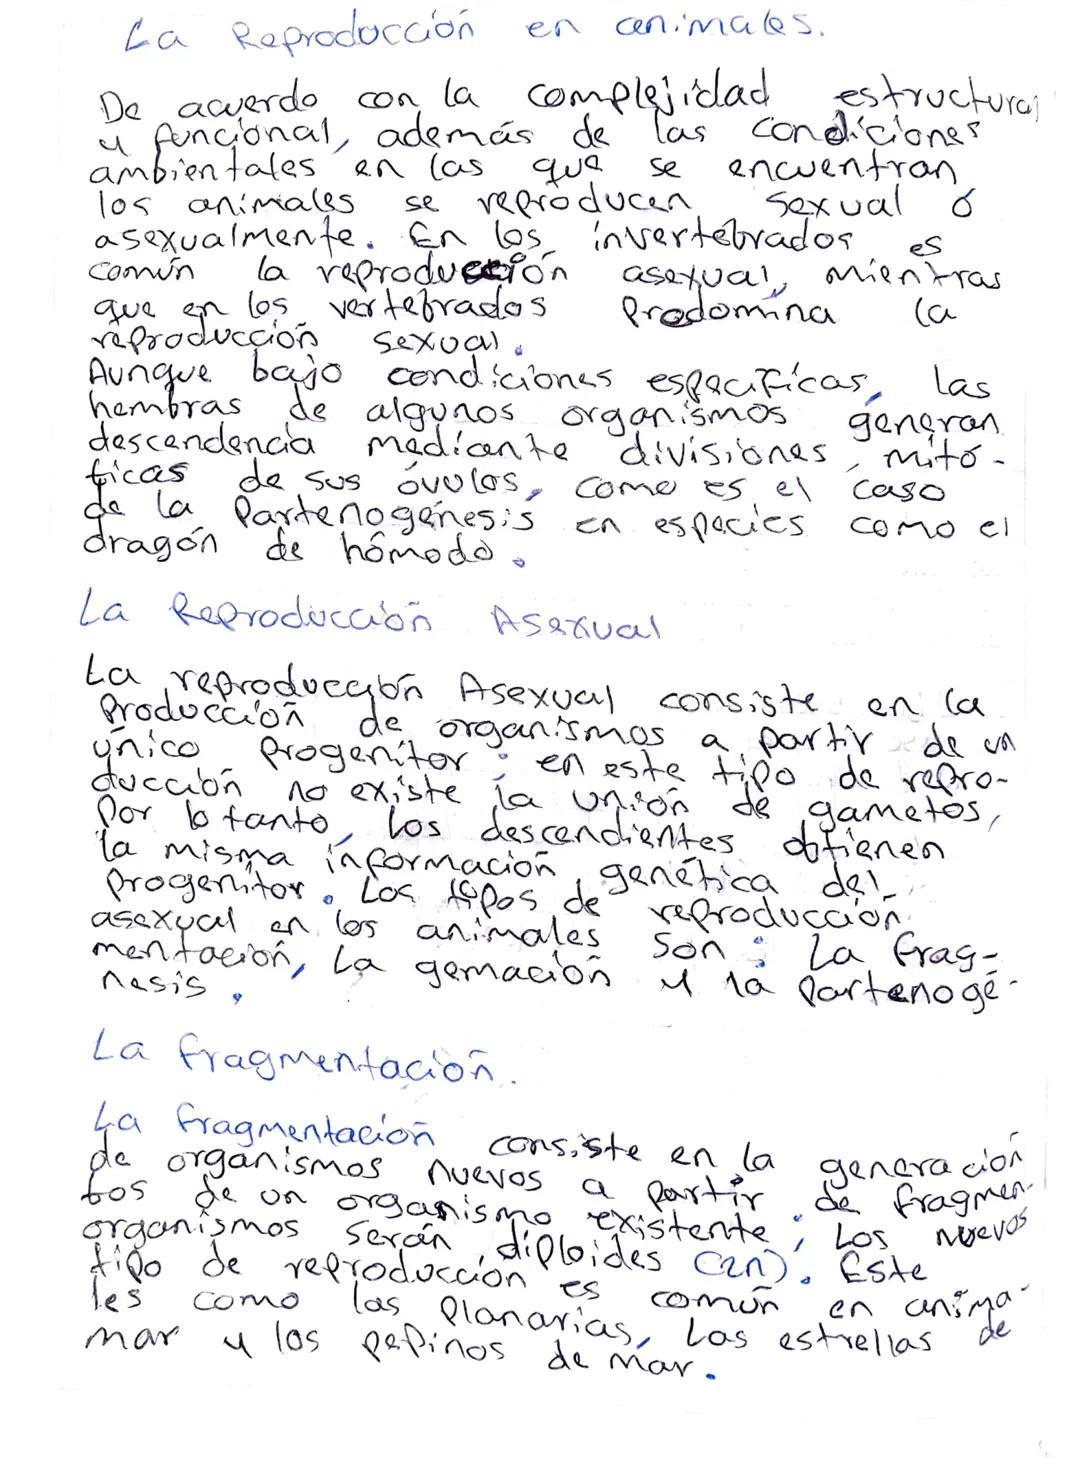 La Reproducción en animales.
De acuerdo con la complejidad estructural
y funcional, además de las condiciones
ambientales en las que se encuentran
los animales se reproducen sexual ó
asexualmente. En los invertebrados es
común la reproducción asexual, mientras
que en los vertebrados Predomina la
reproducción sexual.
Aunque bajo condiciones específicas, las
hembras de algunos organismos generan
descendencia mediante divisiones, mitó-
ticas de sus óvulos, como es el caso
de la Partenogénesis en especies como el
dragón de hómodo.
La Reproducción Asexual
La reproducción Asexual consiste en la
Producción de organismos a partir de un
único progenitor; en este tipo de repro-
ducción no existe la unión de gametos,
Por lo tanto, los descendientes obtienen
la misma información genética del
Progenitor. Los tipos de reproducción
asexual en los animales son: La frag-
mentación, La gemación y la Partenogé-
nesis.
La fragmentación.
La fragmentación consiste en la generación
de organismos nuevos a partir de fragmen-
tos de un organismo existente, Los nuevos
organismos serán diploides (2n). Este
tipo de reproducción es común en anima-
les como las Planarias, Las estrellas de
mar y los pepinos de mar.